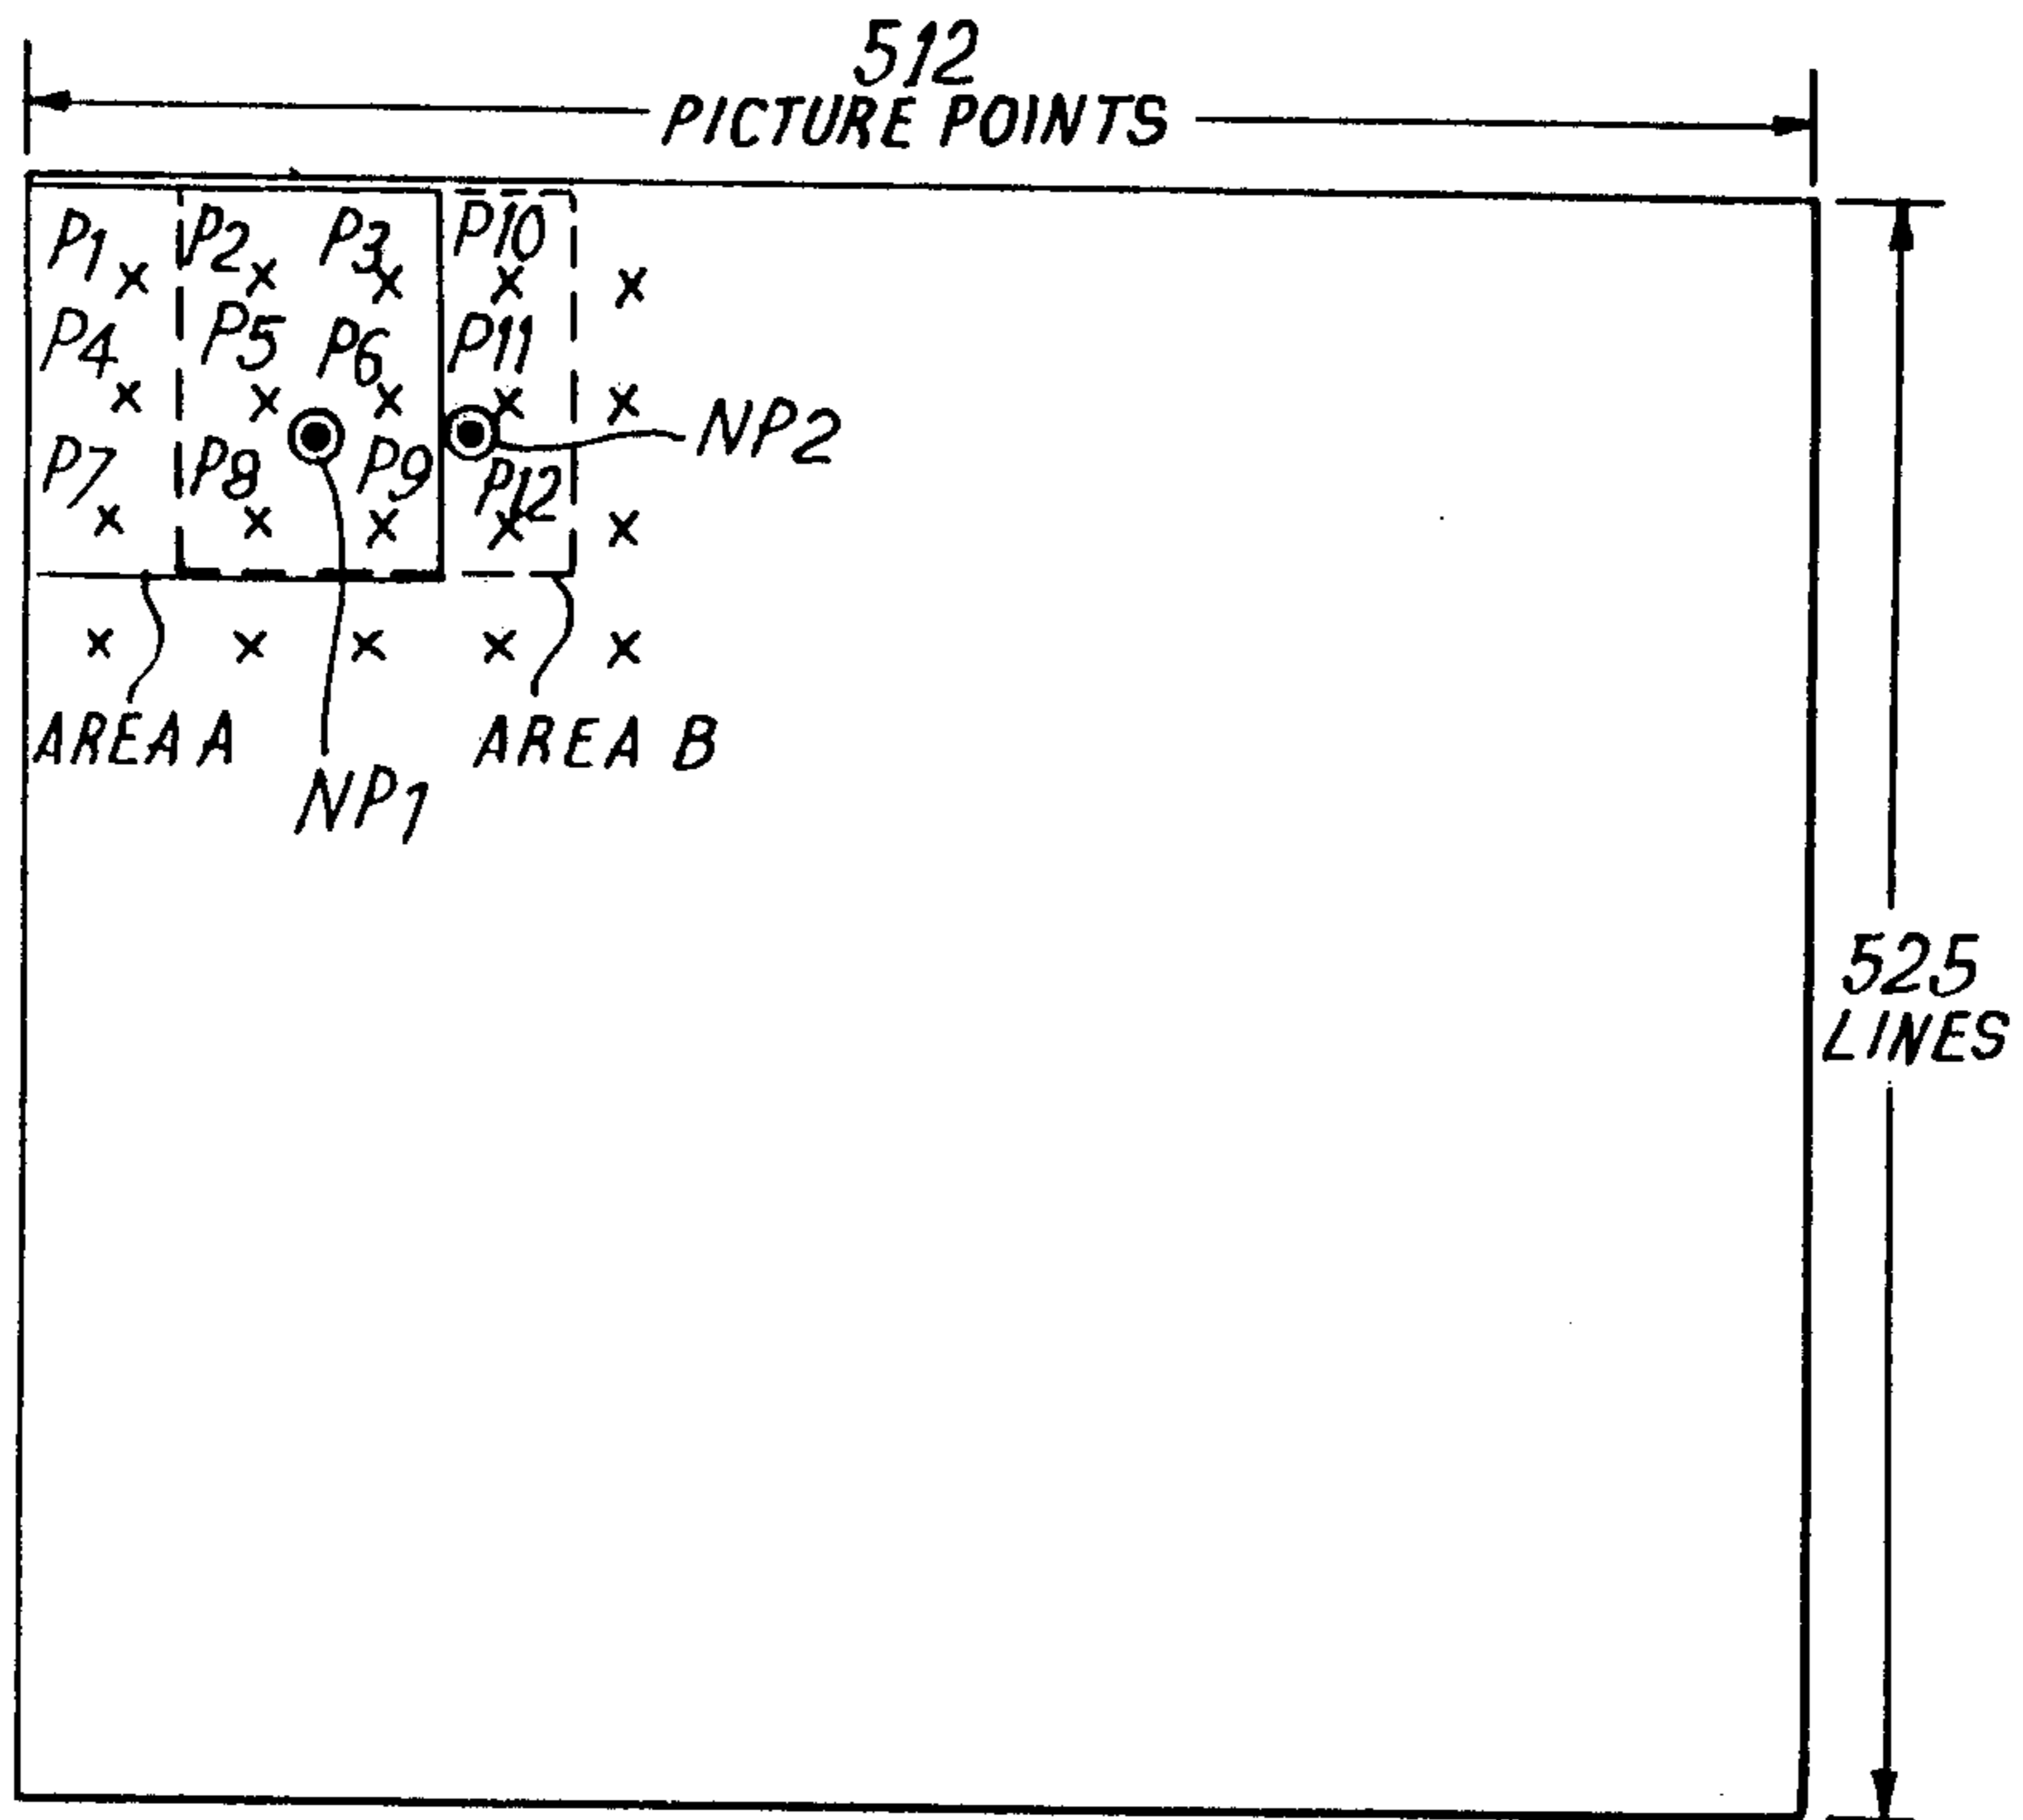 512
PICTURE POINTS
P1 P2 P3 P10
P4 P5 P6 P11
NP2
P7 P8 P9 P12
AREA A AREA B
NP1
525
LINES